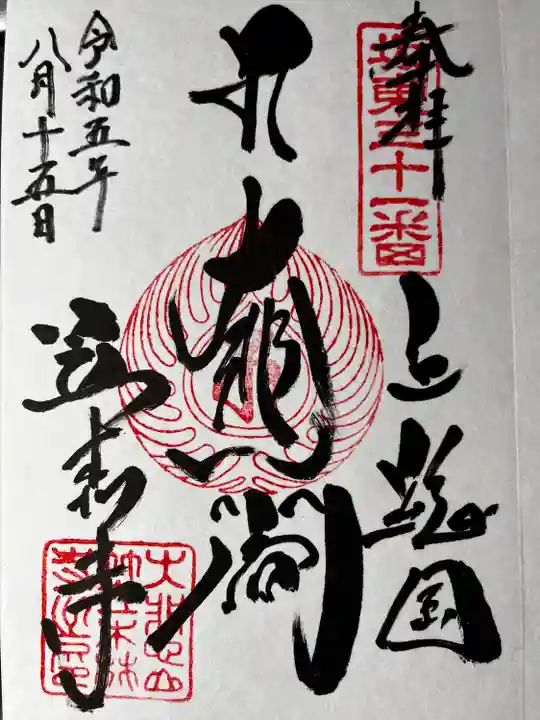 奉拝
坂東三十一番
上総国
大悲閣
笠森寺
令和五年
八月十五日